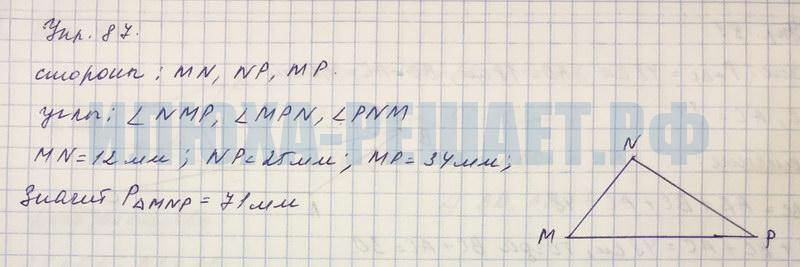 Упр. 87.
стороны: MN, NP, MP.
углы: ∠NMP, ∠MPN, ∠PNM
MN=12мм; NP=25мм; MP=34мм;
Значит P△MNP = 71мм
N
M
P
ИГРОХА-РЕШАЕТ.РФ